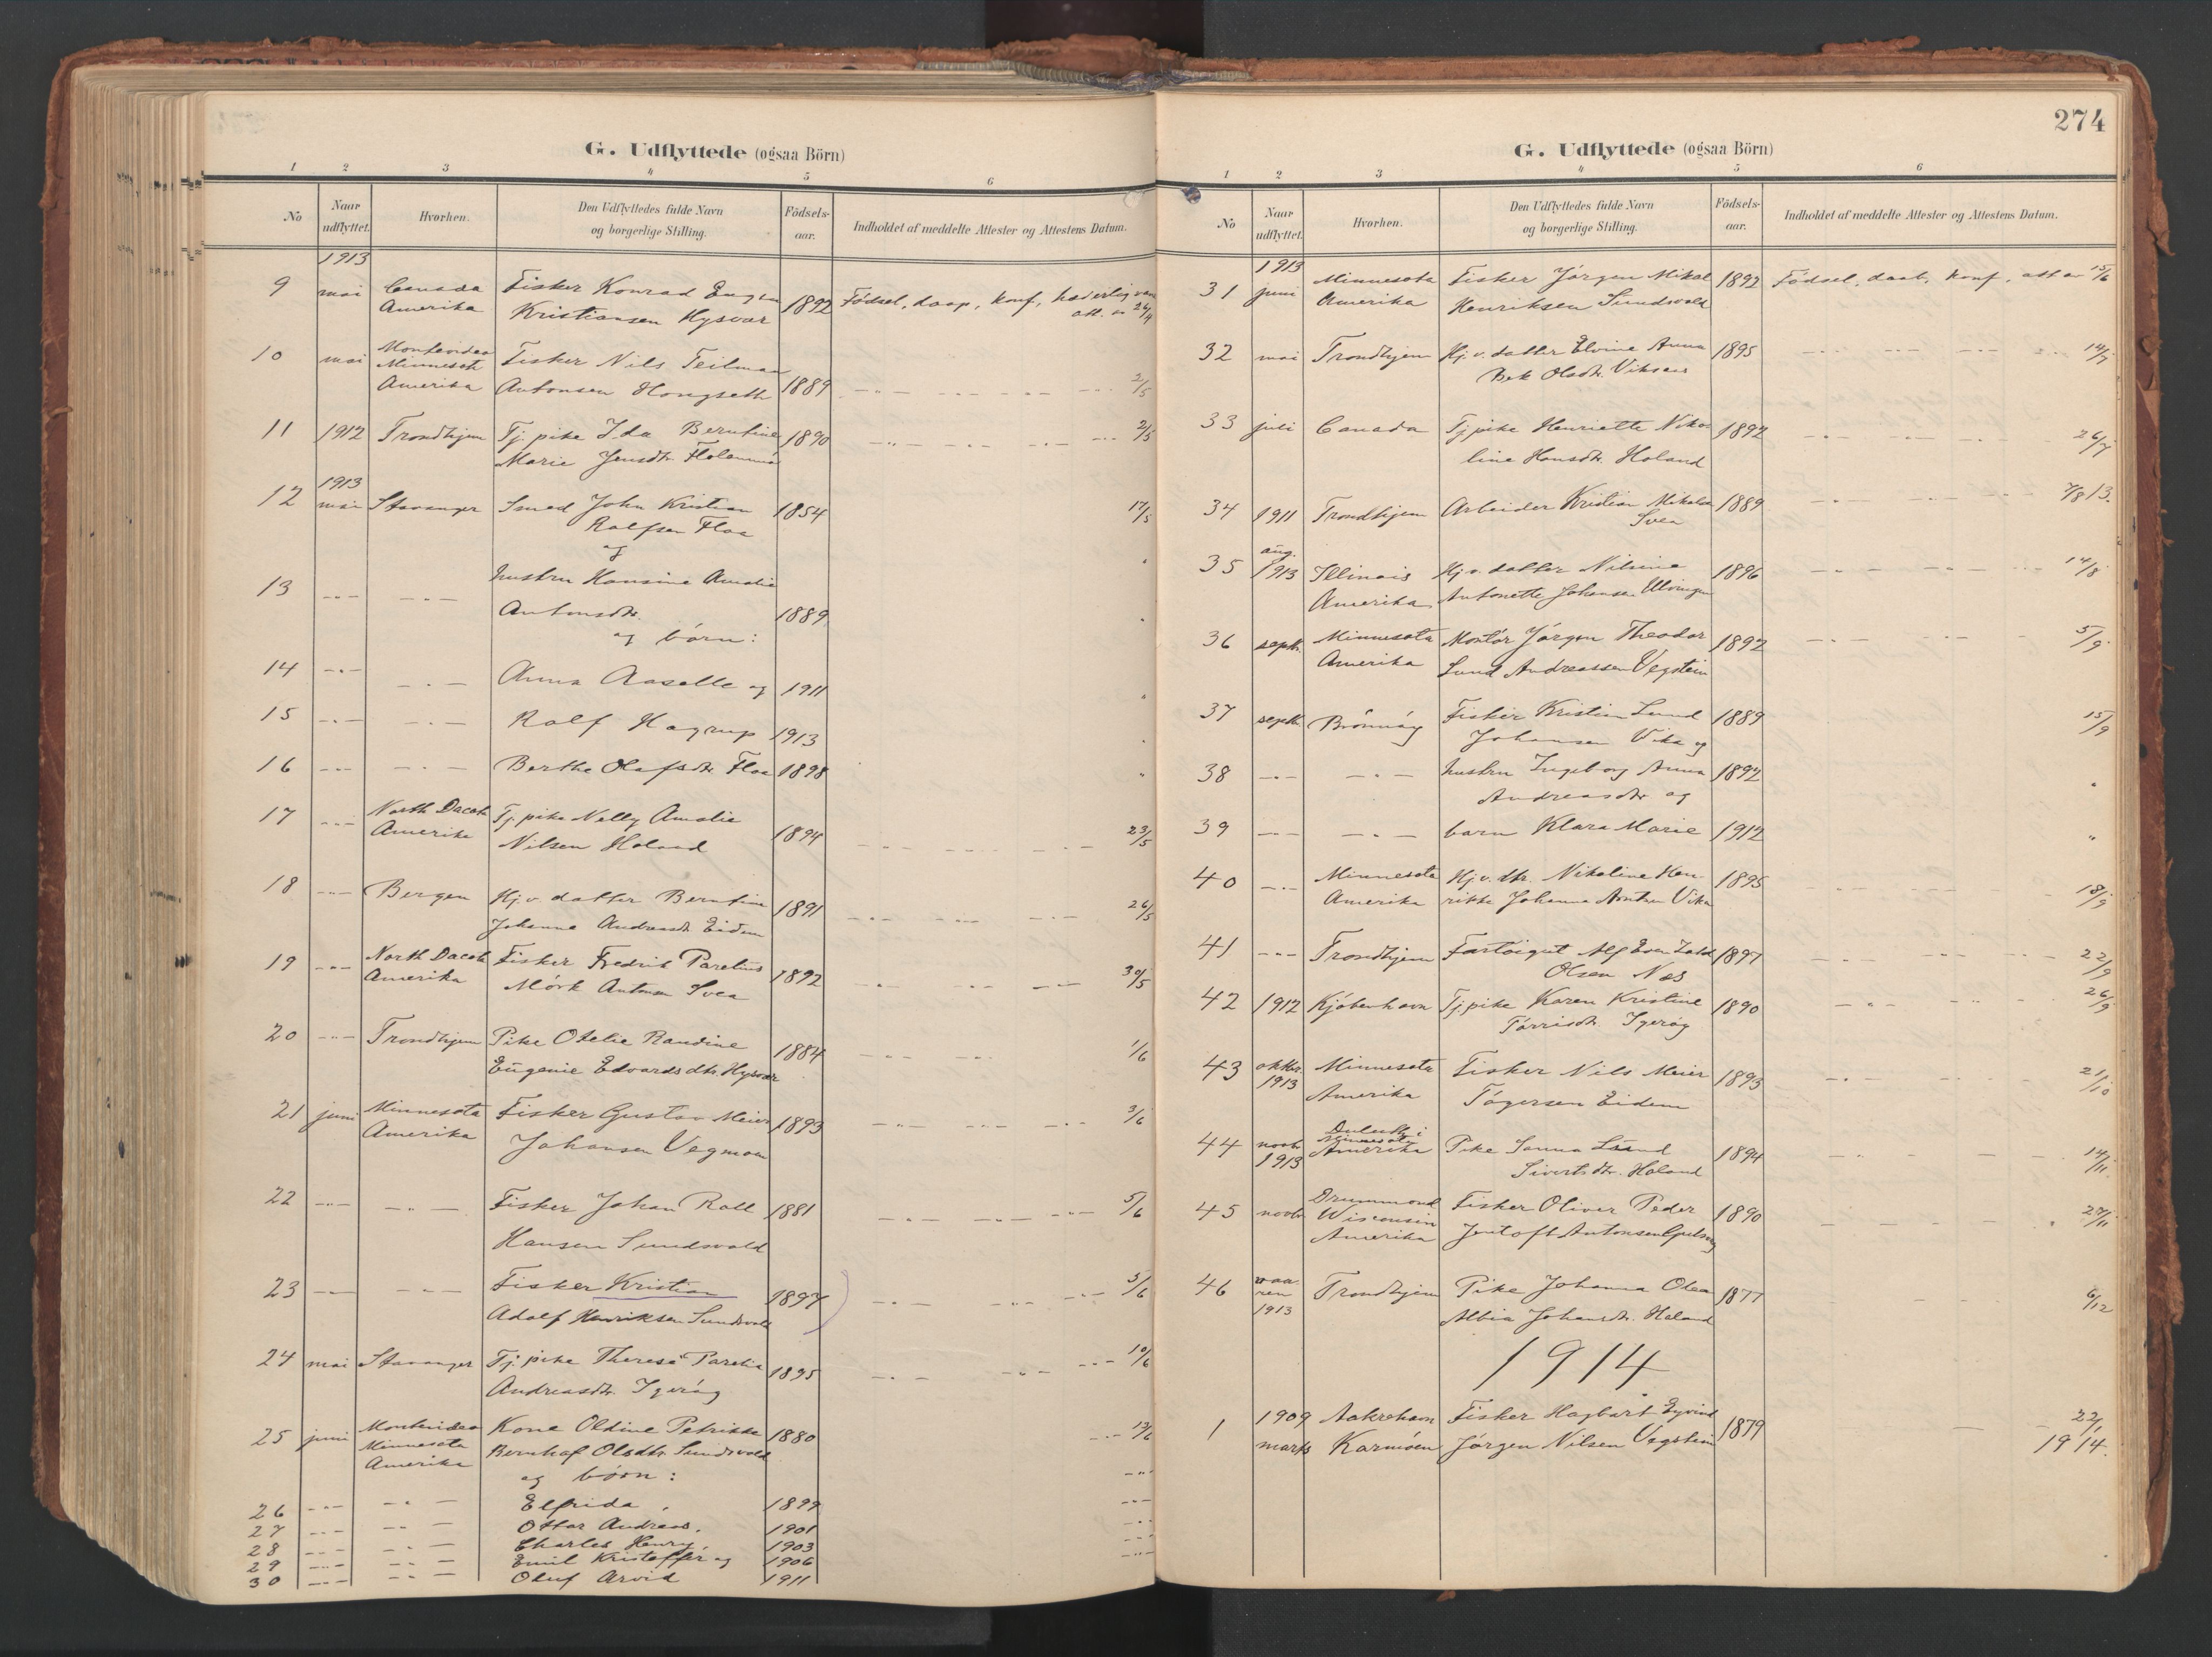 G. Udflyttede (ogsaa Börn)
1 2 3 4 5 6
No
Naar udflyttet.
Hvorhen.
Den Udflyttedes fulde Navn og borgerlige Stilling.
Födsels-aar.
Indholdet af meddelte Attester og Attestens Datum.
1913
9 mai Canada Fisker Konrad Eugen 1892 Födsel, daap, konf,
Amerika Kristiansen Hysvær 26/4
10 mai Montevideo Fisker Nils Teilman
Minnesota
Amerika Antonsen Hongseth 1889 2/5
11 1912 Trondhjem Tj. pike Ida Berntine 1890 2/5
Marie Jensdtr.
1913
12 mai Stavanger Smed John Kristian 1854 17/5
Rolfsen Floa
og
13 hustru Hansine Amalie
Antonsdtr. 1889
og börn:
14 Anna Aaselle og 1911
15 Rolf Hagrup 1913
16 Berthe Olafsdtr. Floa 1898
17 North Dacota Tj. pike Nelly Amalie
Amerika Nilsen Holand 1894 23/5
18 Bergen Hj.v. datter Berntine 1891 26/5
Johanna Andreasdtr. Eidem
19 North Dacota Fisker Fredrik Parelius 1892 30/5
Amerika Mörk Antonsen Svea
20 Trondhjem Pike Otelie Randine 1884 1/6
Eugenie Edvardsdtr. Hysvær
21 juni Minnesota Fisker Gustav Meier 1893 3/6
Amerika Johansen Vegmoen
22 Fisker Johan Roll 1881 5/6
Hansen Sundsvold
23 Fisker Kristian 1897 5/6
Adolf Henriksen Sundsvold
24 mai Stavanger Tj. pike Therese Parelia 1895 10/6
Andreasdtr. Igeröy
25 juni Montevideo Kone Oldine Petrikke 1880 12/6
Minnesota Bernhof Olsdtr. Sundsvold
Amerika og börn:
26 Elfrida 1899
27 Ottar Andreas, 1901
28 Charles Henry, 1903
29 Emil Kristoffer og 1906
30 Oluf Arvid 1911
274
G. Udflyttede (ogsaa Börn)
1 2 3 4 5 6
No
Naar udflyttet.
Hvorhen.
Den Udflyttedes fulde Navn og borgerlige Stilling.
Födsels-aar.
Indholdet af meddelte Attester og Attestens Datum.
1913
31 juni Minnesota Fisker Jörgen Mikal 1892 Födsel, daab, konf, att av 15/6
Amerika Henriksen Sundsvold
32 mai Trondhjem Hj.v. datter Elvine Anna 1895 14/7
Bek Olsdtr. Viksaas
33 juli Canada Tj pike Henriette Niko 1892 26/7
line Hansdtr. Holand
34 1911 Trondhjem Arbeider Kristian Mikalsen 1889 7/8 13.
Svea
35 aug. 1913 Illinois Hj.v. datter Nilsine 1896 14/8
Amerika Antonette Johansen Ulvingen
36 septb. Minnesota Montör Jörgen Theodor 1892 5/9
Amerika Lund Andreassen Vegstein
37 septb. Brönnöy Fisker Kristian Lund 1889 15/9
Johansen Vika og
38 hustru Ingeborg Anna 1892
Andreasdtr og
39 barn Klara Marie 1912
40 Minnesota Hj.v. dtr. Nikoline Hen 1895 18/9
Amerika rikke Johanna Arntsen Vika
41 Trondhjem Fartöigut Alf Even 1897 22/9
Olsen Næs
42 1912 Kjöbenhavn Tj.pike Karen Kristine 1890 26/9
Törrisdtr. Igeröy
43 oktbr. 1913 Minnesota Fisker Nils Meier 1893 21/10
Amerika Tögersen Eidem
44 novb. 1913 Duluth i Minnesota
Amerika Pike Sanna Lund 1894 14/11.
Sivertsdtr. Holand
45 novb Drummond Fisker Oliver Peder 1890 27/11
Wisconsin
Amerika Jentoft Antonsen
46 vaaren 1913 Trondhjem Pike Johanna Olea 1877 6/12
Albia Johansdtr. Holand
1914
1 1909 Aakrehavn Fisker Hagbart Eyvind 1879 22/1
marts Karmöen Jörgen Nilsen Vegstein 1914.